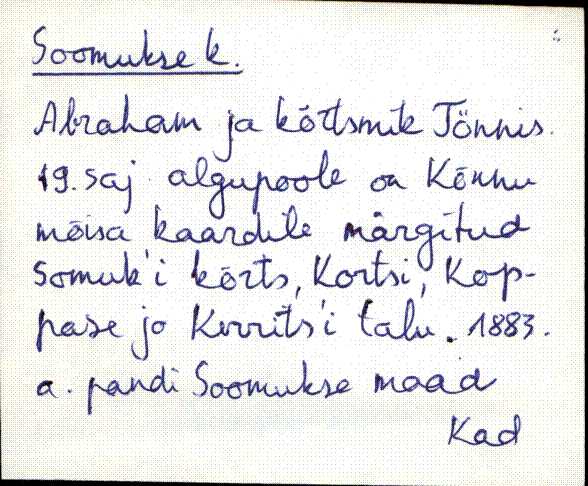 Soomukse k.
Abraham ja kõrtsmik Tõnnis.
19. saj algupoole on Kõnnu
mõisa kaardile märgitud
Somuk'i kõrts, Kortsi, Kop-
pase ja Kirrits'i talu. 1883.
a. pandi Soomukse maad
Kad